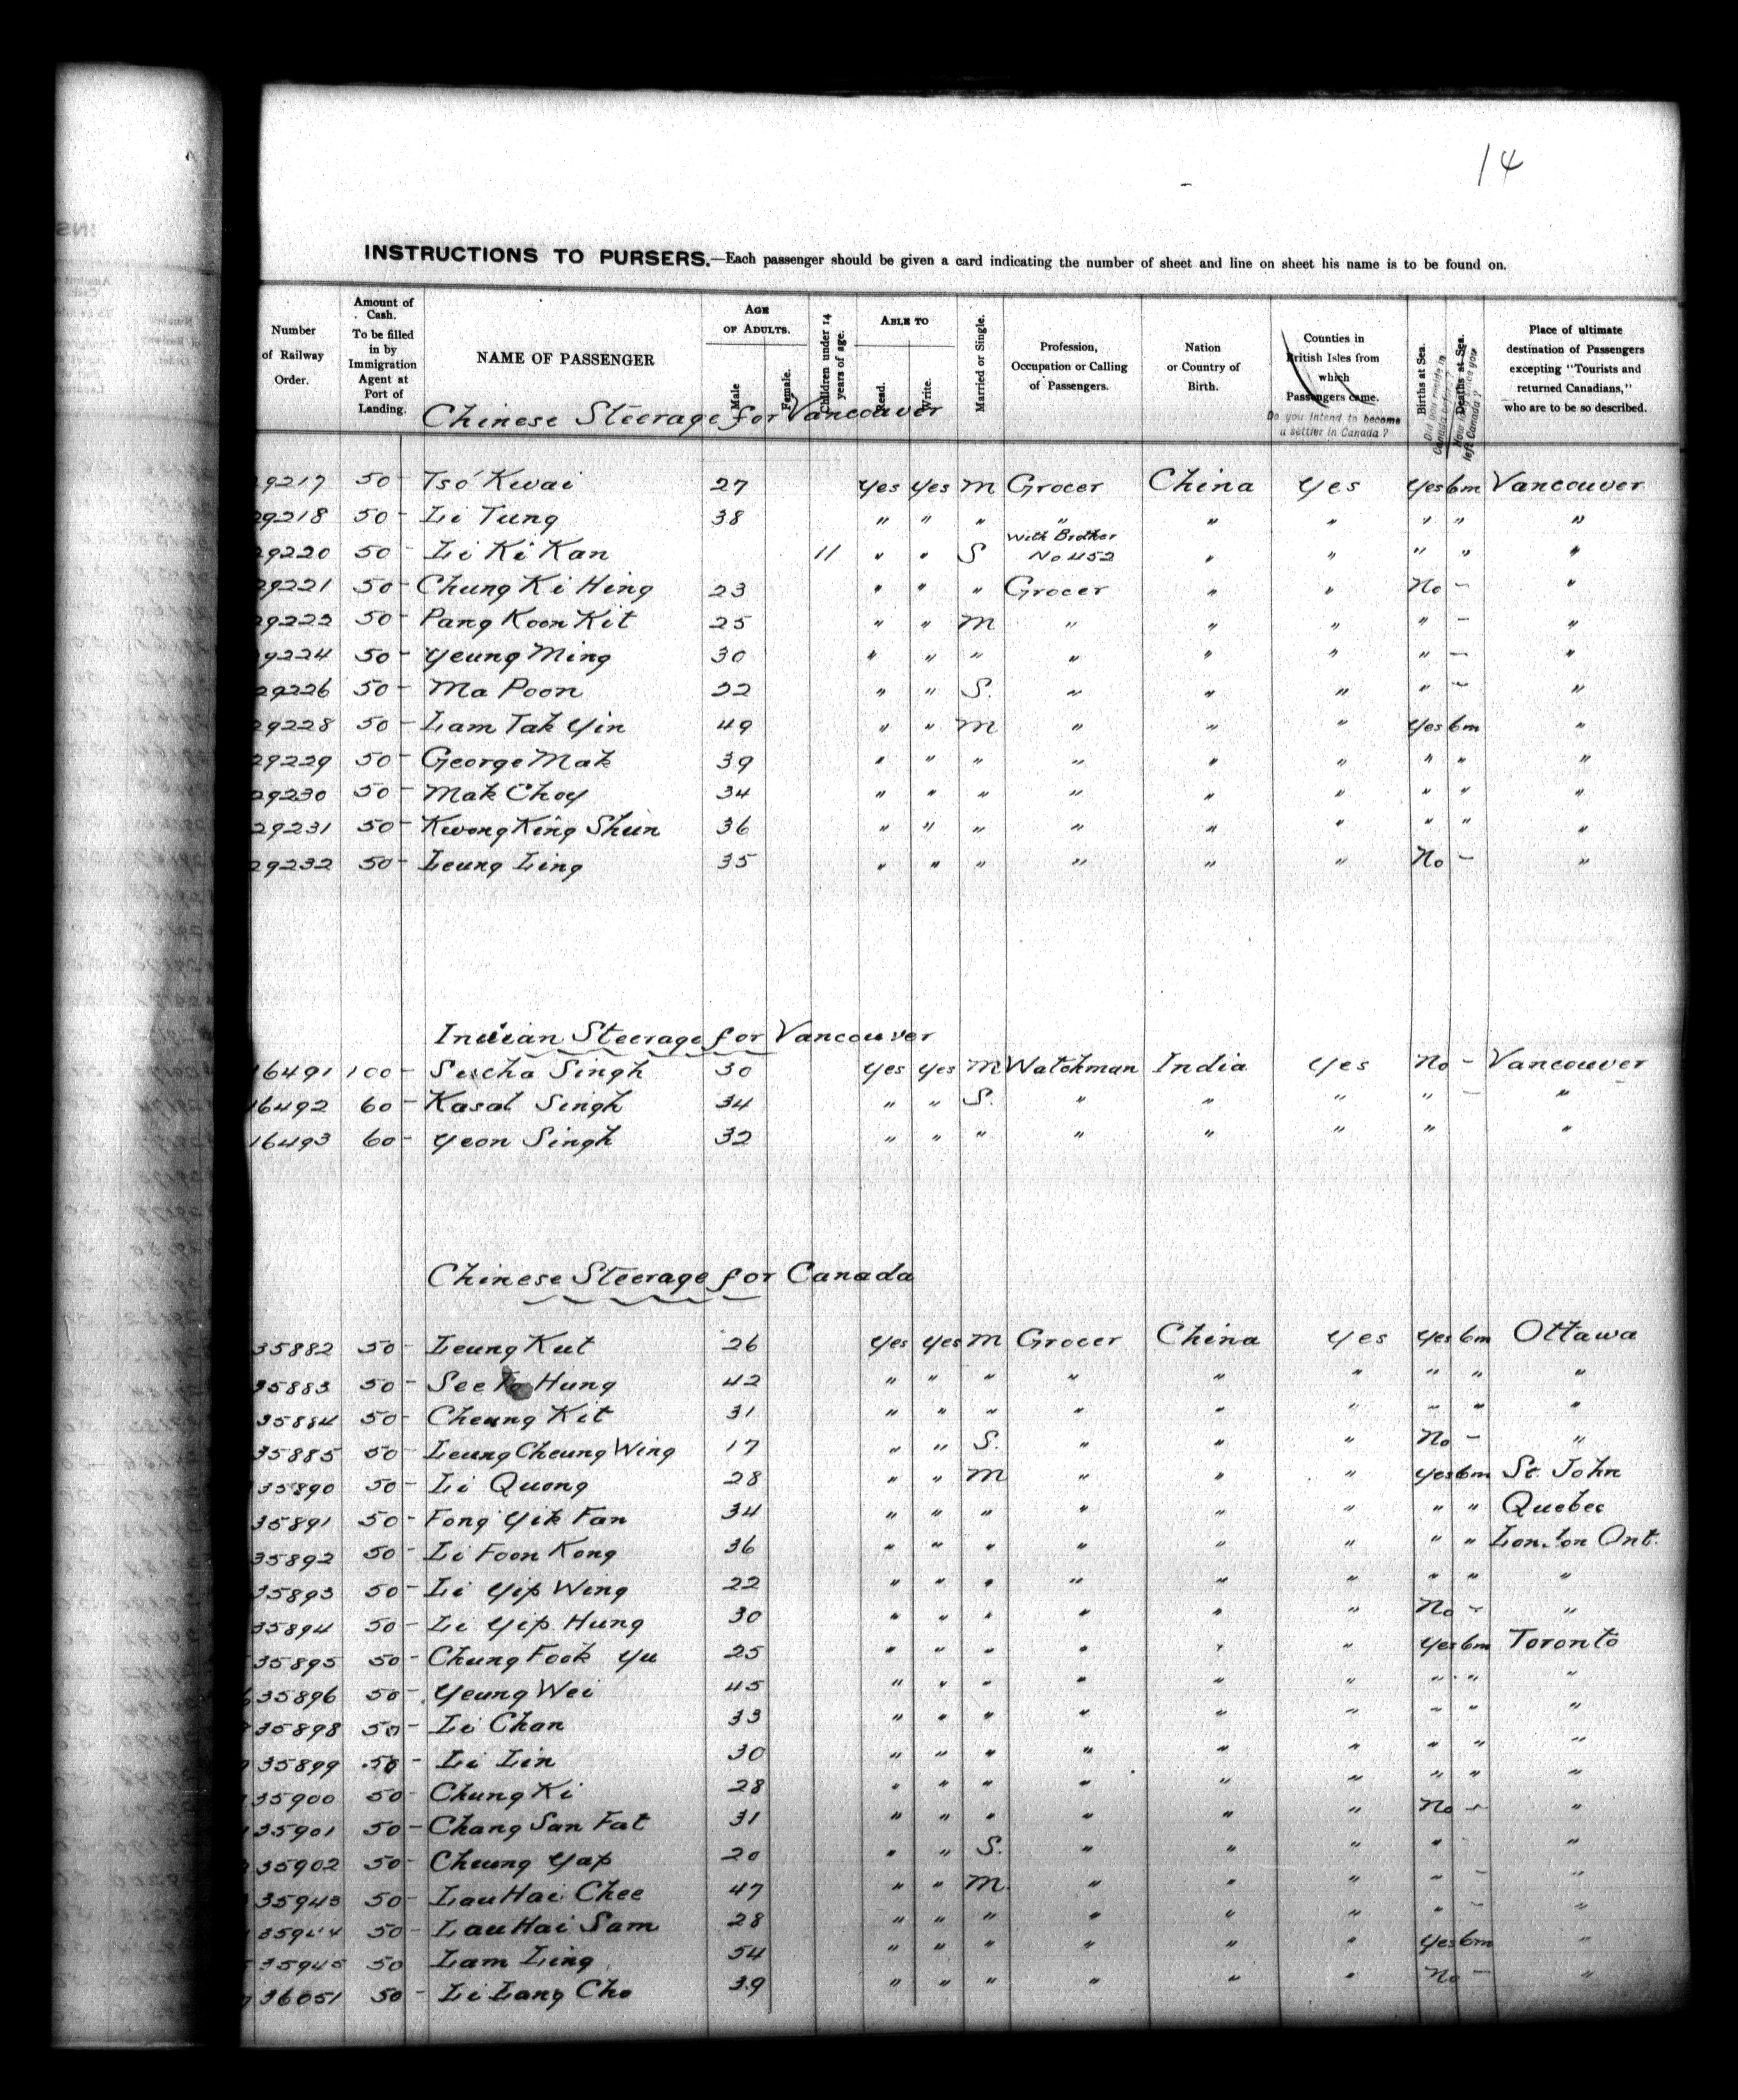 14
INSTRUCTIONS TO PURSERS.—Each passenger should be given a card indicating the number of sheet and line on sheet his name is to be found on.
Number of Railway Order.
Amount of Cash. To be filled in by Immigration Agent at Port of Landing.
NAME OF PASSENGER
AGE OF ADULTS.
Male
Female.
Children under 14 years of age.
ABLE TO
Read.
Write.
Married or Single.
Profession, Occupation or Calling of Passengers.
Nation or Country of Birth.
Counties in British Isles from which Passengers came.
Do you intend to become a settler in Canada ?
Births at Sea.
Did you reside in Canada before ?
Deaths at Sea.
left Canada ?
Place of ultimate destination of Passengers excepting "Tourists and returned Canadians," who are to be so described.
Chinese Steerage for Vancouver
29217 50 - Tso Kwai 27 Yes Yes M Grocer China Yes Yes 6m Vancouver
29218 50 - Li Tung 38 " " " " " " " " "
29220 50 - Li Ki Kan 11 " " S With Brother No 452 " " " " "
29221 50 - Chung Ki Hing 23 " " " Grocer " " No - "
29223 50 - Pang Koon Kit 25 " " M " " " " - "
9224 50 - Yeung Ming 30 " " " " " " " - "
29226 50 - Ma Poon 22 " " S. " " " " - "
29228 50 - Lam Tak Yin 49 " " M " " " Yes 6m "
29229 50 - George Mak 39 " " " " " " " " "
29230 50 - Mak Choy 34 " " " " " " " " "
29231 50 - Kwong King Shun 36 " " " " " " " " "
29232 50 - Leung Ling 35 " " " " " " No - "
Indian Steerage for Vancouver
16491 100 - Sucha Singh 30 Yes Yes M Watchman India Yes No - Vancouver
16492 60 - Kasal Singh 34 " " S. " " " " - "
16493 60 - Yeon Singh 32 " " " " " " " "
Chinese Steerage for Canada
35882 50 - Leung Kut 26 Yes Yes M Grocer China Yes Yes 6m Ottawa
35883 50 - See To Hung 42 " " " " " " " " "
35884 50 - Cheung Kit 31 " " " " " " " " "
35885 50 - Leung Cheung Wing 17 " " S. " " " No - "
35890 50 - Li Quong 28 " " M " " " Yes 6m St. John
35891 50 - Fong Yik Fan 34 " " " " " " " " Quebec
35892 50 - Li Foon Kong 36 " " " " " " " " London Ont.
35893 50 - Li Yip Wing 22 " " " " " " " " "
35894 50 - Li Yip Hung 30 " " " " " " No - "
35895 50 - Chung Fook Yu 25 " " " " " " Yes 6m Toronto
35896 50 - Yeung Wei 45 " " " " " " " " "
35898 50 - Li Chan 33 " " " " " " " " "
35899 50 - Li Lin 30 " " " " " " " " "
35900 50 - Chung Ki 28 " " " " " " " " "
35901 50 - Chang San Fat 31 " " " " " " No - "
35902 50 - Cheung Yap 20 " " S. " " " " - "
35943 50 - Lau Hai Chee 47 " " M. " " " " - "
35944 50 - Lau Hai Sam 28 " " " " " " " - "
35945 50 Lam Ling 54 " " " " " " Yes 6m "
36051 50 - Li Lang Cho 39 " " " " " " No - "